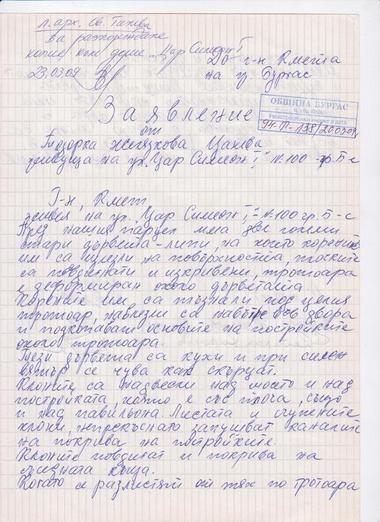 п. арх. Св. Танева
за разпореждане
копие към деше „Цар Симеон I
23.03.09
До г-н Кмета
на гр. Бургас
ОБЩИНА БУРГАС
94-П-138/2003.09
Заявление
от
Тодорка Желязкова Цанева
живуща на ул. Цар Симеон I, №100 гр. Б-с
Г-н, Кмет,
живея, на ул. Цар Симеон I, №100 гр. Б-с
Пред нашия парцел има две големи
стари дървета-липи, на които корените
им са излезли на повърхността, плочките
са повдигнати и изкривени, тротоара
е деформиран около дърветата.
Корените им са тръгнали под целия
тротоар, навлезли са навътре във двора
и подкопават основите на постройките
около тротоара.
Тези дървета са кухи и при силен
вятър се чува как скърцат.
Клоните са надвесени над мосто и над
постройката, която е със плоча, също
и над павильона. Листата и счупените
клони, непрекъснато запушват каналите
на покрива на постройките.
Клоните повдигат и покрива на
жилищната къща.
Когато се разлистят от тях по тротоара